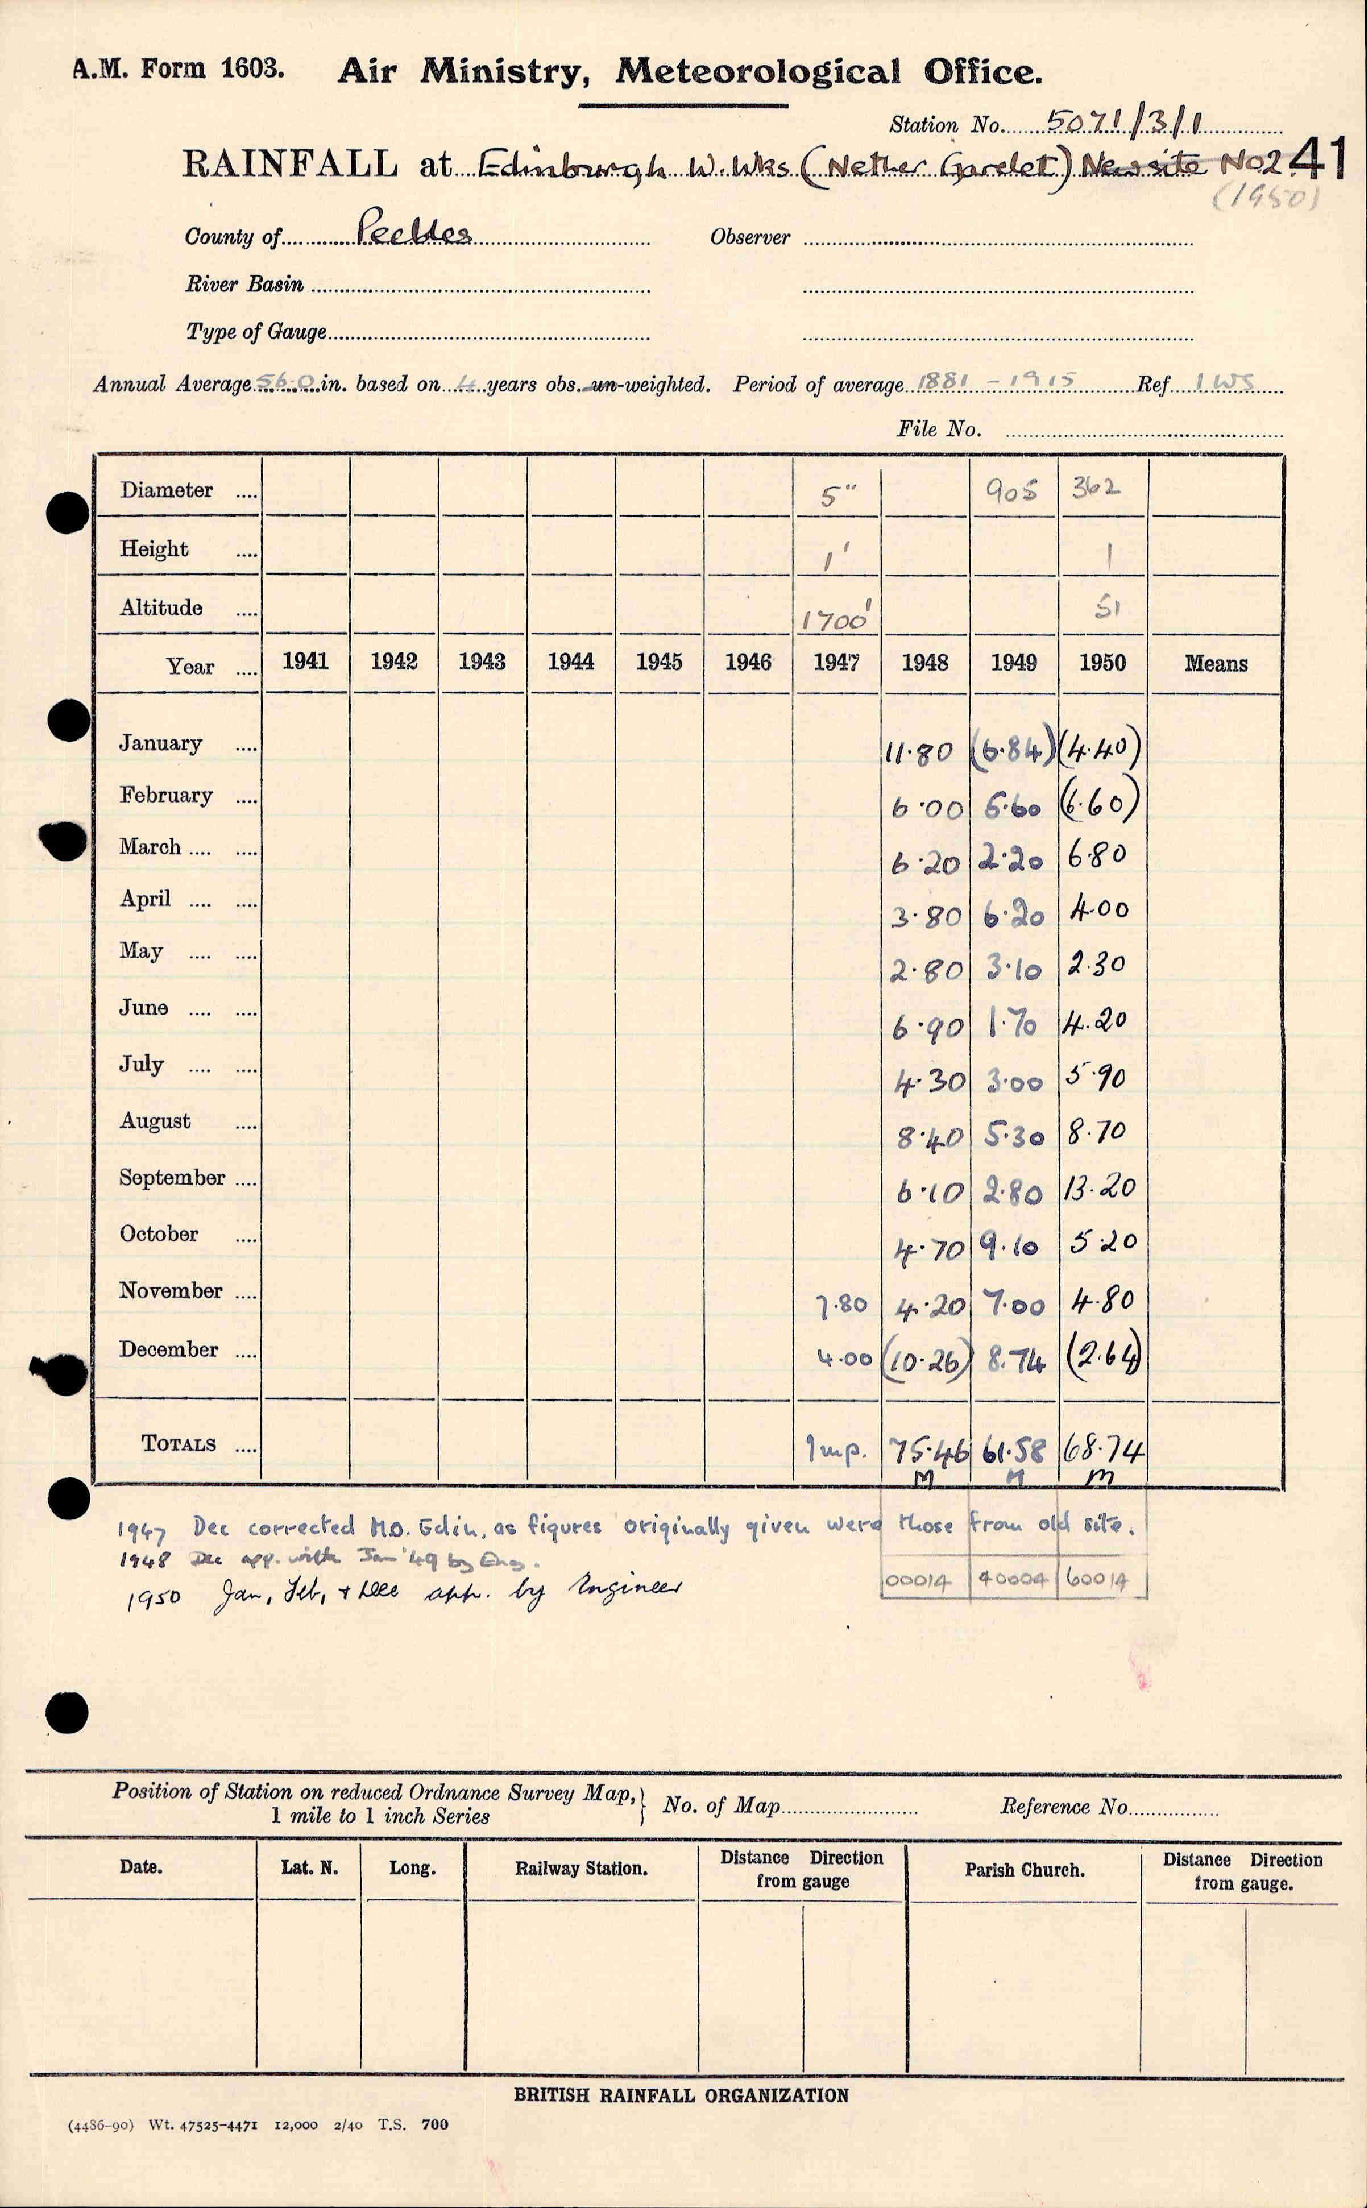 A.M. Form 1603. Air Ministry, Meteorological Office.
Station No. 5071/3/1
RAINFALL at Edinburgh W. Wks (Nether Gardet) New site No2. 41
(1950)
County of Peebles Observer
River Basin
Type of Gauge
Annual Average 56.0 in. based on 4 years obs. un-weighted. Period of average 1881 - 1915 Ref. 1WS
File No.
Diameter .... 5" 905 362
Height .... 1' 1
Altitude .... 1700' 51
Year .... 1941 1942 1943 1944 1945 1946 1947 1948 1949 1950 Means
January .... 11.80 (6.84) (4.40)
February .... 6.00 5.60 (6.60)
March .... .... 6.20 2.20 6.80
April .... .... 3.80 6.20 4.00
May .... .... 2.80 3.10 2.30
June .... .... 6.90 1.70 4.20
July .... .... 4.30 3.00 5.90
August .... 8.40 5.30 8.70
September .... 6.10 2.80 13.20
October .... 4.70 9.10 5.20
November .... 7.80 4.20 7.00 4.80
December .... 4.00 (10.26) 8.74 (2.64)
TOTALS .... Imp. 75.46 61.58 68.74
M M M
1947 Dec corrected M.O. Edin, as figures originally given were those from old site.
1948 Dec app. with Jan '49 by Eng.
1950 Jan, Feb, + Dec app. by Engineer
00014 40004 60014
Position of Station on reduced Ordnance Survey Map, 1 mile to 1 inch Series } No. of Map Reference No.
Date. Lat. N. Long. Railway Station. Distance Direction from gauge Parish Church. Distance Direction from gauge.
BRITISH RAINFALL ORGANIZATION
(4486-90) Wt. 47525-4471 12,000 2/40 T.S. 700